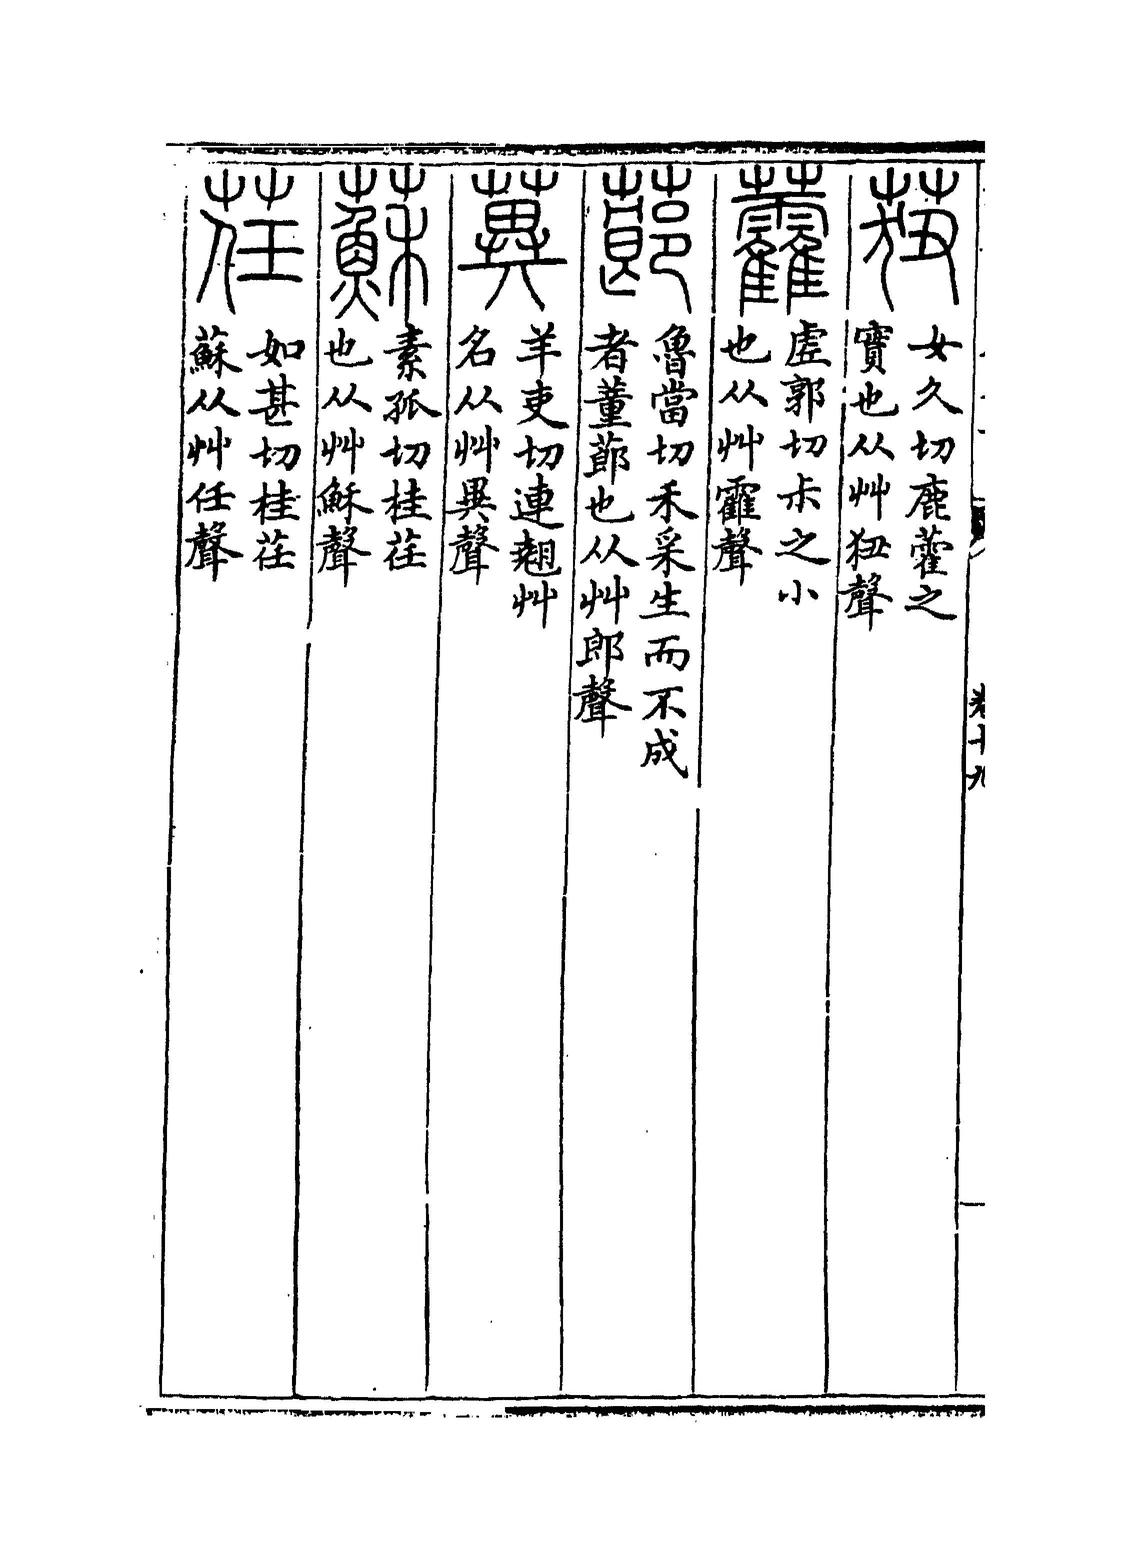 莥
女久切鹿藿之
實也从艸狃聲
虛郭切尗之小
也从艸霍聲
蓈
魯當切禾采生而不成
者董蓈也从艸郎聲
羊吏切連翹艸
名从艸異聲
蘇
素孤切桂荏
也从艸穌聲
荏
如甚切桂荏
蘇从艸任聲
卷十九